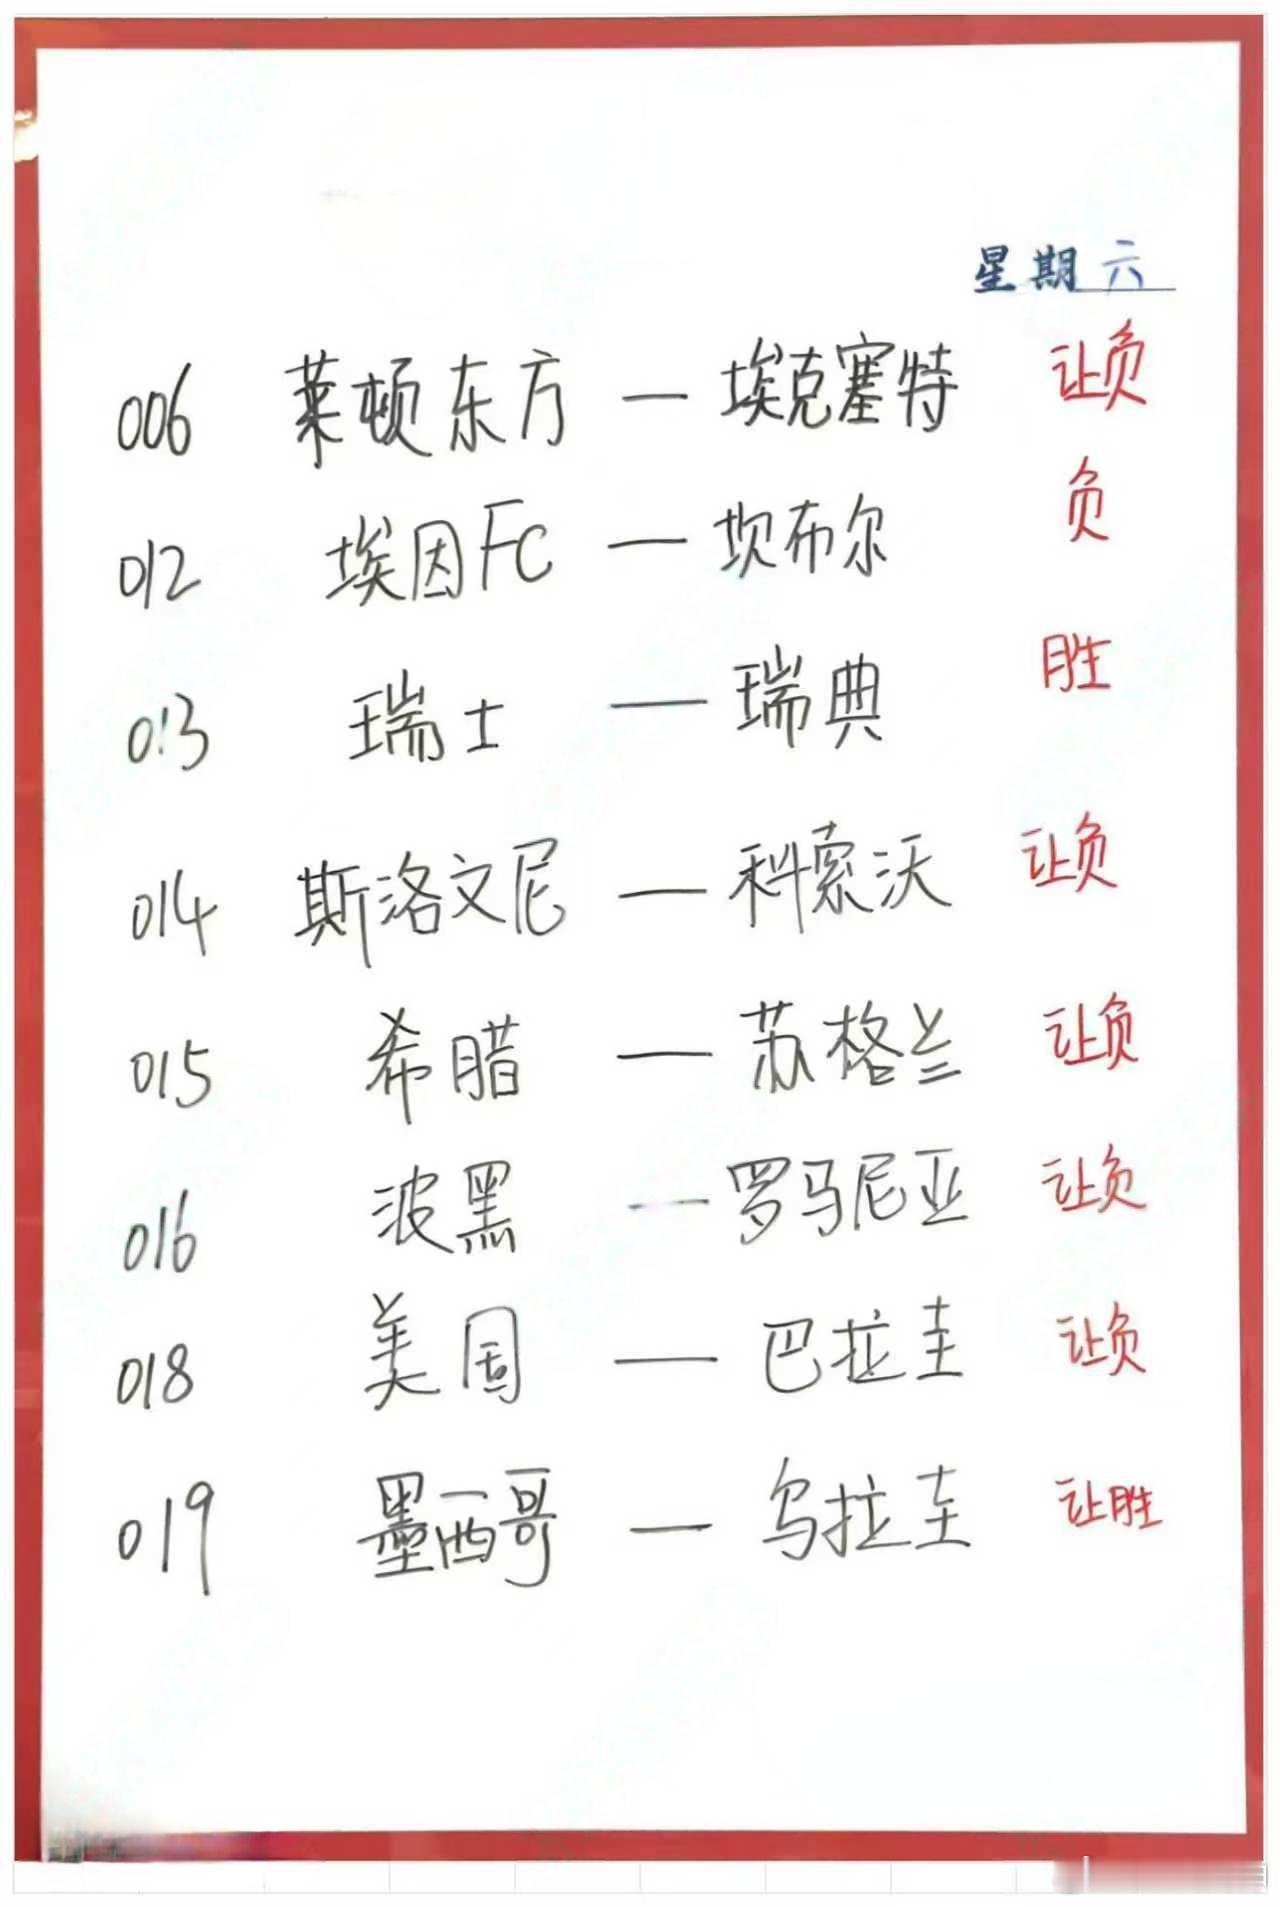 星期六
006 莱顿东方 — 埃克塞特 让负
012 埃因FC — 坎布尔 负
013 瑞士 — 瑞典 胜
014 斯洛文尼 — 科索沃 让负
015 希腊 — 苏格兰 让负
016 波黑 — 罗马尼亚 让负
018 美国 — 巴拉圭 让负
019 墨西哥 — 乌拉圭 让胜